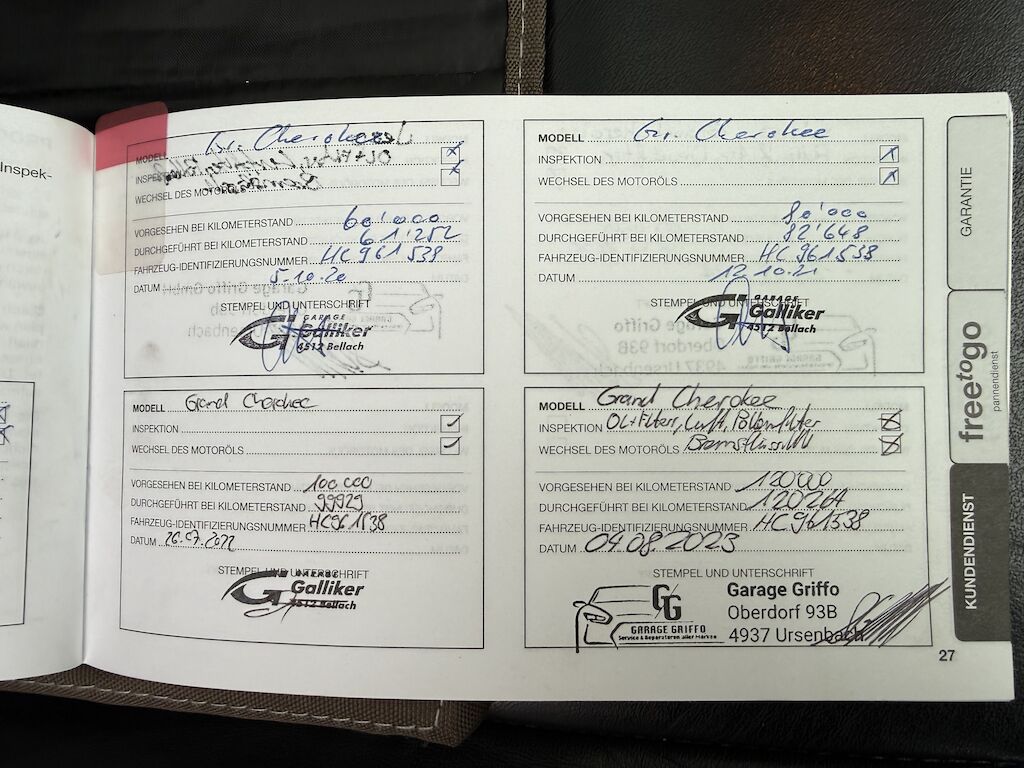 Inspek-
MODELL Gr. Cherokee
INSPEKTION
WECHSEL DES MOTORÖLS
VORGESEHEN BEI KILOMETERSTAND 60'000
DURCHGEFÜHRT BEI KILOMETERSTAND 61'252
FAHRZEUG-IDENTIFIZIERUNGSNUMMER HC961538
DATUM 5.10.20
STEMPEL UND UNTERSCHRIFT
GARAGE
Galliker
4512 Bellach
MODELL Gr. Cherokee
INSPEKTION
WECHSEL DES MOTORÖLS
VORGESEHEN BEI KILOMETERSTAND 80'000
DURCHGEFÜHRT BEI KILOMETERSTAND 82'648
FAHRZEUG-IDENTIFIZIERUNGSNUMMER HC961538
DATUM 12.10.21
STEMPEL UND UNTERSCHRIFT
GARAGE
Galliker
4512 Bellach
MODELL Grand Cherokee
INSPEKTION
WECHSEL DES MOTORÖLS
VORGESEHEN BEI KILOMETERSTAND 100000
DURCHGEFÜHRT BEI KILOMETERSTAND 99929
FAHRZEUG-IDENTIFIZIERUNGSNUMMER HC961538
DATUM 26.07.2022
STEMPEL UND UNTERSCHRIFT
GARAGE
Galliker
4512 Bellach
MODELL Grand Cherokee
INSPEKTION OL+Filter, Luft, Pollenfilter
WECHSEL DES MOTORÖLS
VORGESEHEN BEI KILOMETERSTAND 120000
DURCHGEFÜHRT BEI KILOMETERSTAND 120264
FAHRZEUG-IDENTIFIZIERUNGSNUMMER HC961538
DATUM 04.08.2023
STEMPEL UND UNTERSCHRIFT
GG
GARAGE GRIFFO
Service & Reparaturen aller Marken
Garage Griffo
Oberdorf 93B
4937 Ursenbach
GARANTIE
freetogo
pannendienst
KUNDENDIENST
27